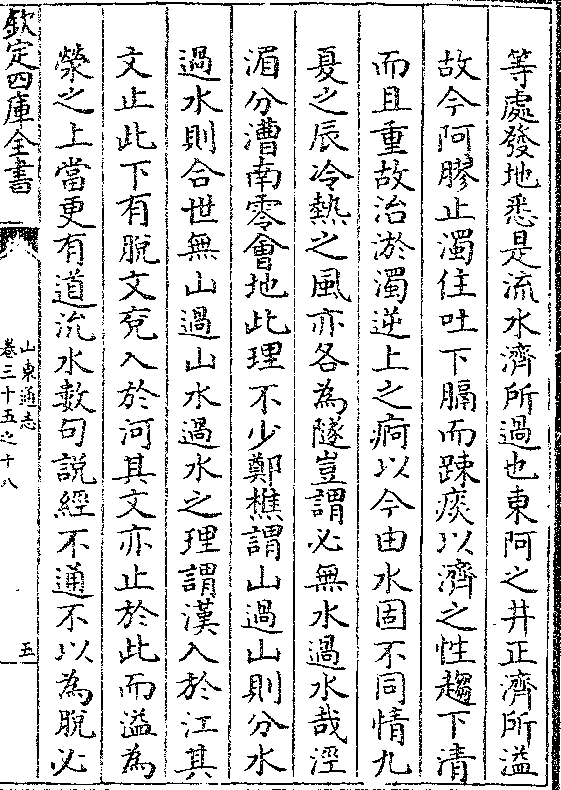 等處發地悉是流水濟所過也東阿之井正濟所溢
故今阿膠止濁住吐下膈而踈痰以濟之性趨下清
而且重故治淤濁逆上之痾以今由水固不同情九
夏之辰冷熱之風亦各為隧豈謂必無水過水哉涇
湄分漕南零㑹地此理不少鄭樵謂山過山則分水
過水則合世無山過山水過水之理謂漢入於江其
文止此下有脫文兖入於河其文亦止於此而溢為
滎之上當更有道沇水數句說經不通不以為脫必
欽定四庫全書
山東通志
卷三十五之十八
五